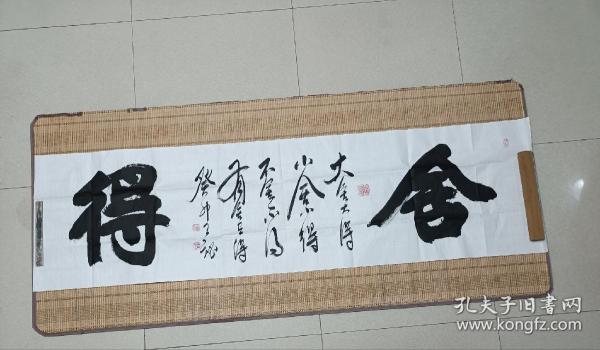 舍
大舍大得
小舍小得
不舍不得
有舍有得
得
孔夫子旧书网
www.kongfz.com